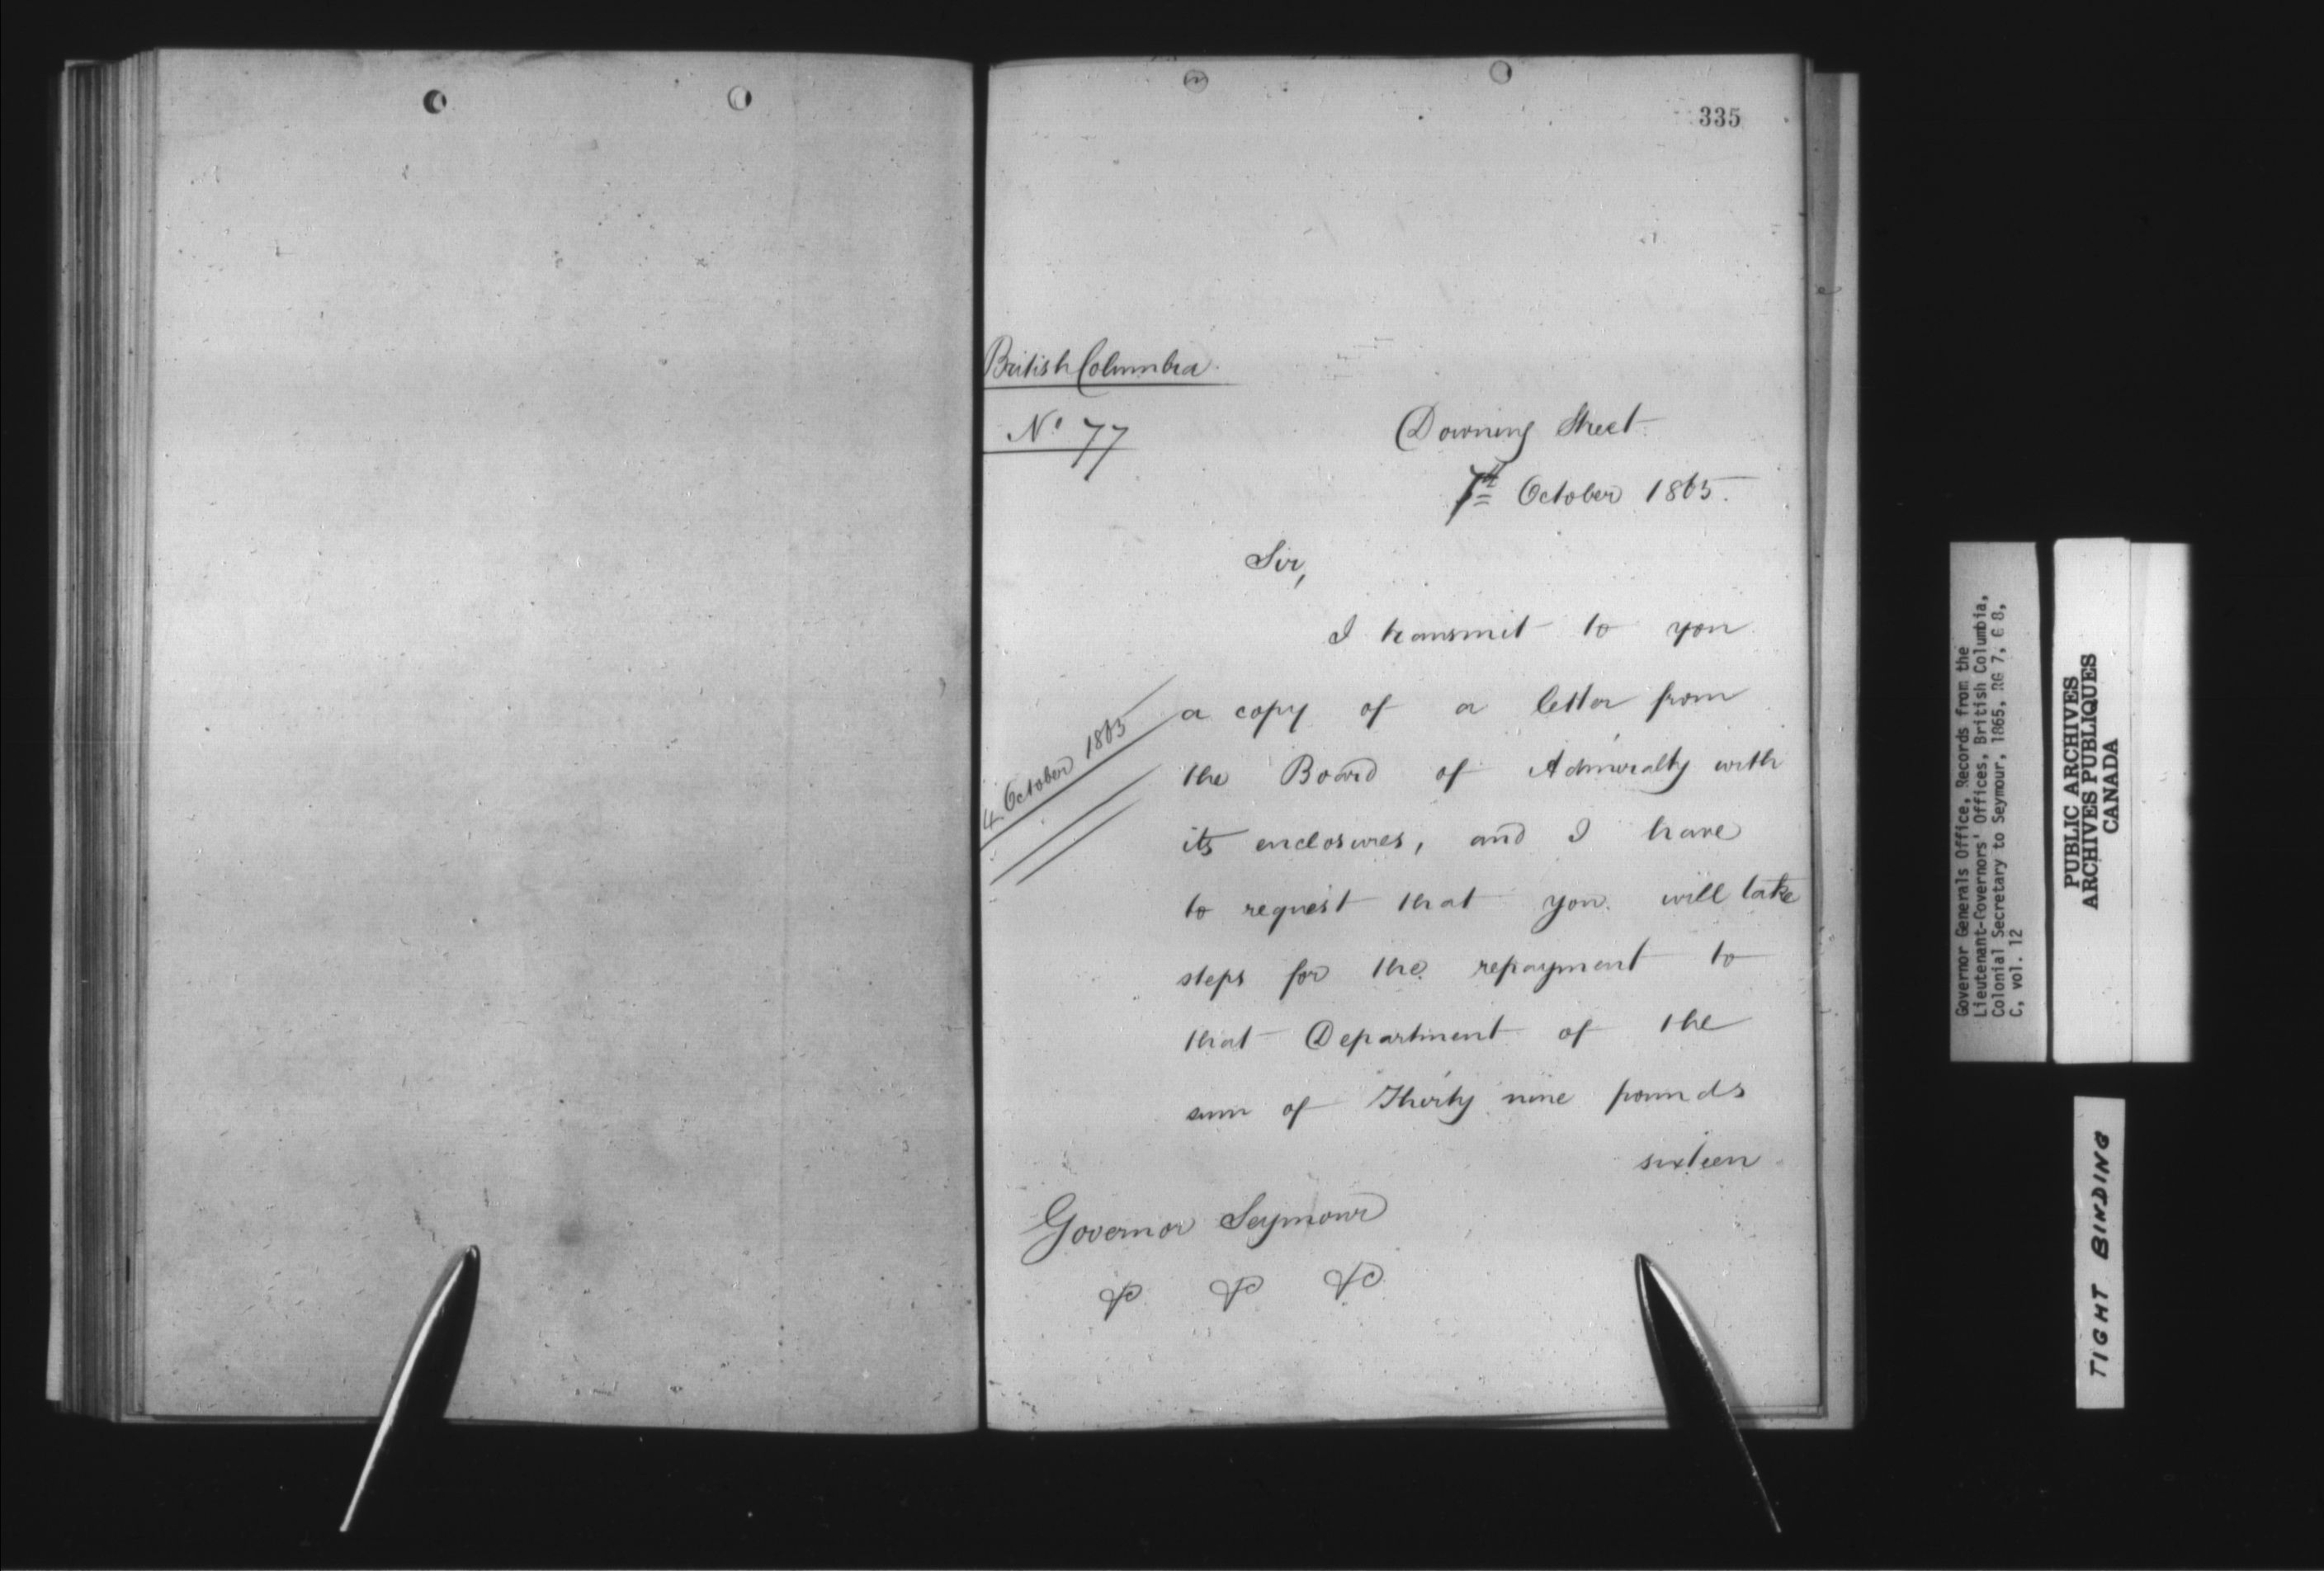 335
British Columbia.
No 77
Downing Street
7th October 1865.
Sir,
I transmit to you
a copy of a letter from
4 October 1865
the Board of Admiralty with
its enclosures, and I have
to request that you will take
steps for the repayment to
that Department of the
sum of Thirty nine pounds
sixteen
Governor Seymour
&c &c &c
Governor Generals Office, Records from the
Lieutenant-Governors' Offices, British Columbia,
Colonial Secretary to Seymour, 1865, RG 7, G 8,
C, vol. 12
PUBLIC ARCHIVES
ARCHIVES PUBLIQUES
CANADA
TIGHT BINDING